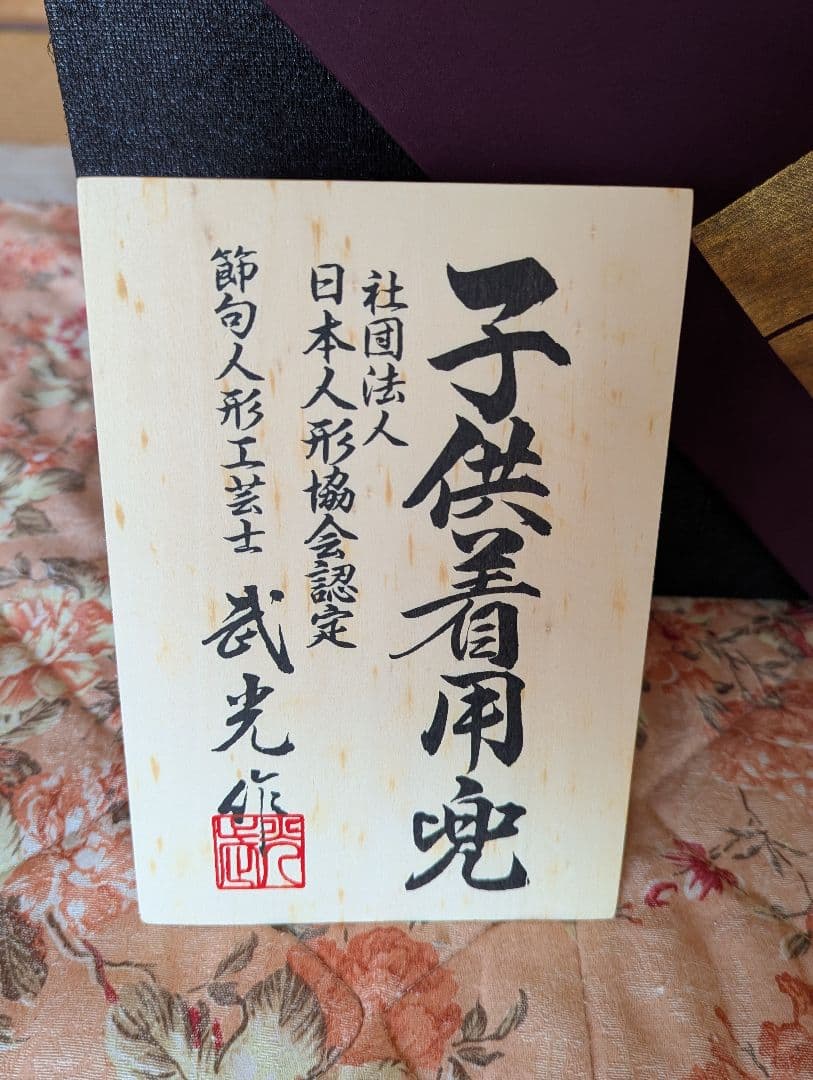 子供着用兜
社団法人
日本人形協会認定
節句人形工芸士 武光作